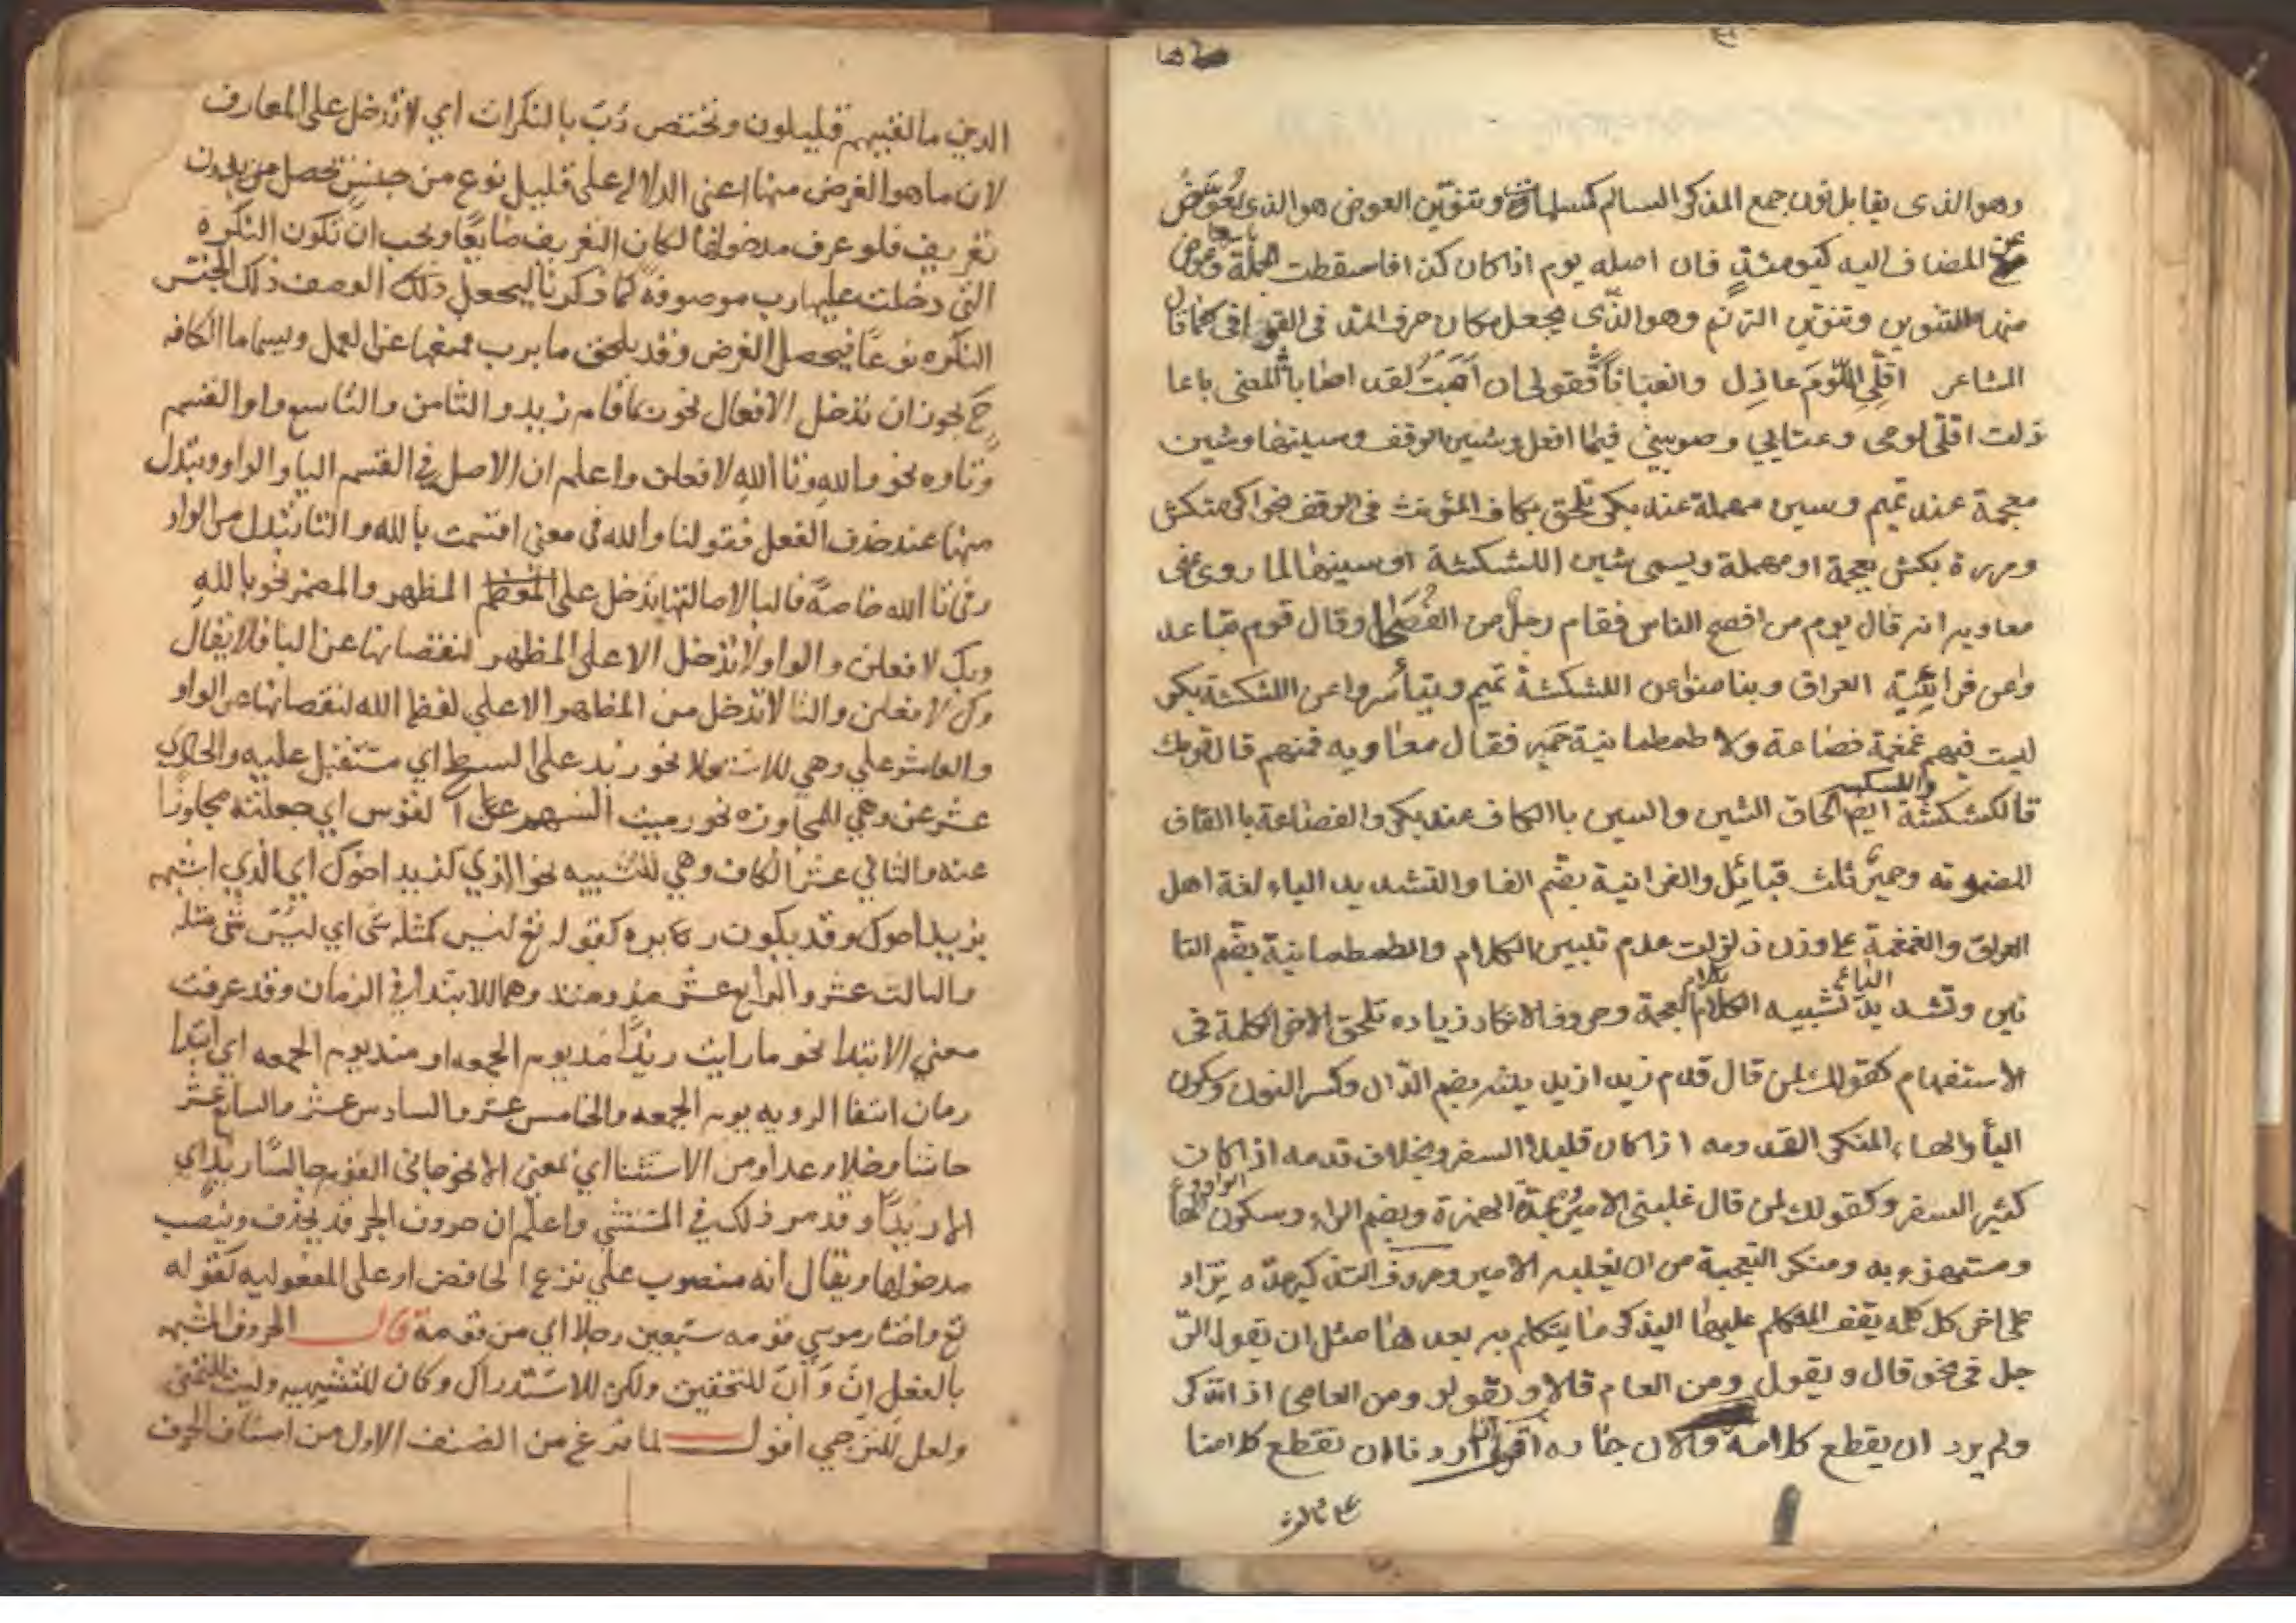 وهو الذى يقابل نون جمع المذكر السالم كمسلمات وتنوين العوض هو الذى يعوض
عن المضاف اليه كيومئذٍ فان اصله يوم اذا كان كذا فاسقطت الجملة وعوض
منها التنوين وتنوين الترنم وهو الذى يجعل مكان حرف المد فى القوافى كما قال
الشاعر اقلّى اللوم عاذل والعتابا فقولى ان اصبت لقد اصابا المعنى يا عا
ذلت اقلى لومى وعتابي وصوبيني فيما افعل وشين الوقف وسينها وشين
معجمة عند تميم وسين مهملة عند بكر تلحق بكاف المؤنث فى الوقف نحو اكرمتكش
ومررة بكش بعجمة او مهملة ويسمى شين الكشكشة او سينها لما روى عن
معاويه انه قال يوم من افصح الناس فقام رجل من الفصحا وقال قوم تباعد
واعن فراتية العراق وتيامنوا عن الكشكشة تميم وتياسروا عن الكشكشة بكر
ليت فيهم غمغمة قضاعة ولا طمطمانية حمير فقال معاويه فمنهم قال قومك
والكسكسه
فالكشكشة ايضا الحاق الشين والسين باالكاف عند بكر والقضاعة باالقاف
المضمومه وحمير ثلث قبائل والفراتية بضم الفا والتشديد الياء لغة اهل
العراق والغمغمة على وزن زلزلت عدم تبيين الكلام والطمطمانية بضم الطا
ئين وتشديد الياء تشبيه الكلام بكلام العجمة وحروف الانكار زياده تلحق الاخر الكلمة فى
الاستفهام كقولك لمن قال قدم زيد ازيد ينه بضم الدال وكسر النون وسكون
اليأ والهاء المنكر القدومه اذا كان قليل السفر وبخلاف قدمه اذا كان
كثير السفر وكقولك لمن قال غلبنى الامير بمدة الهمزة وبضم الراء وسكون الواو والها
ومستهزء به ومنكر التعجبة من ان يغلبه الامير وحروف التذكير مده تزاد
على اخر كل كلمه يقف المتكلم عليها ليذكر ما يتكلم به بعدها مثل ان يقول الر
جل فى نحو قال ويقول ومن العام قالا ويقولو ومن العامى اذا تذكر
ولم يرد ان يقطع كلامه
اردنا ان نقطع كلامنا
الذين ما لقيتهم قليلون وتختص رُبّ بالنكرات اي لا تدخل على المعارف
لان ما هو الغرض منها اعني الدلاله على قليل نوع من جنس تحصل من بدون
تعريف فلو عرف مدخولها لكان التعريف ضايعًا ويجب ان تكون النكره
التي دخلت عليها رب موصوفه كما ذكرنا ليجعل ذلك الوصف ذلك الجنس
النكره نوعًا فيحصل الغرض وقد يلحق ما برب فتمنعها عن العمل ويسما ما الكافه
ح يجوز ان تدخل الافعال نحو ربما قام زيد والثامن والتاسع واو القسم
وتاوه نحو والله وتا الله لافعلن واعلم ان الاصل في القسم البا والواو وتبدل
منها عند حذف الفعل فقولنا والله في معنى اقسمت بالله والتا تبدل من الواو
وفى تا الله خاصةً فالبا لاصالتها تدخل على المظهر والمضمر نحو بالله
وبك لافعلن والواو لا تدخل الا على المظهر لنقصانها عن البا فلا يقال
وك لافعلن والتا لا تدخل من المظاهر الا على لفظ الله لنقصانها عن الواو
والعاشر على وهي للاستعلا نحو زيد على السطح اي مستقبل عليه والحادي
عشر عن وهي للمجاوزه نحو رميت السهم عن القوس اي جعلته مجاوزًا
عنه والثاني عشر الكاف وهي للتشبيه نحو الذي كزيد اخوك اي الذي اشبه
بزيد اخوك وقد يكون زايده كقوله تع ليس كمثله شى اي ليس شى مثله
والثالث عشر والرابع عشر مذ ومنذ وهما للابتدا في الزمان وقد عرفت
معني الابتدا نحو ما رايت زيدًا مذ يوم الجمعه او منذ يوم الجمعه اي ابتدا
زمان انتفا الرويه يوم الجمعه والخامس عشر والسادس عشر والسابع عشر
حاشا وخلا وعدا ومن الاستثنا اي بمعنى الا نحو جانى القوم حاشا زيد اي
الا زيدًا وقد مر ذلك في المستثنى واعلم ان حروف الجر قد يحذف وينصب
مدخولها ويقال انه منصوب على نزع الخافض او على المفعوليه كقوله
تع واختار موسي قومه سبعين رجلا اي من قومه قال الحروف المشبهه
بالفعل انّ وَ أنّ للتحقيق ولكن للاستدراك وكان للتشبيه وليت للتمنى
ولعل للترجي اقول لما فرغ من الصنف الاول من اصناف الحرف